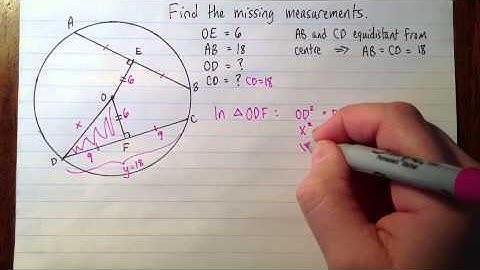 Find the missing measurements.
OE = 6
AB = 18
OD = ?
CD = ? CD=18
AB and CD equidistant from
centre ⇒ AB = CD = 18
In △ODF: OD² =
x²
A
E
B
6
O
6
x
C
D
9
F
9
y=18